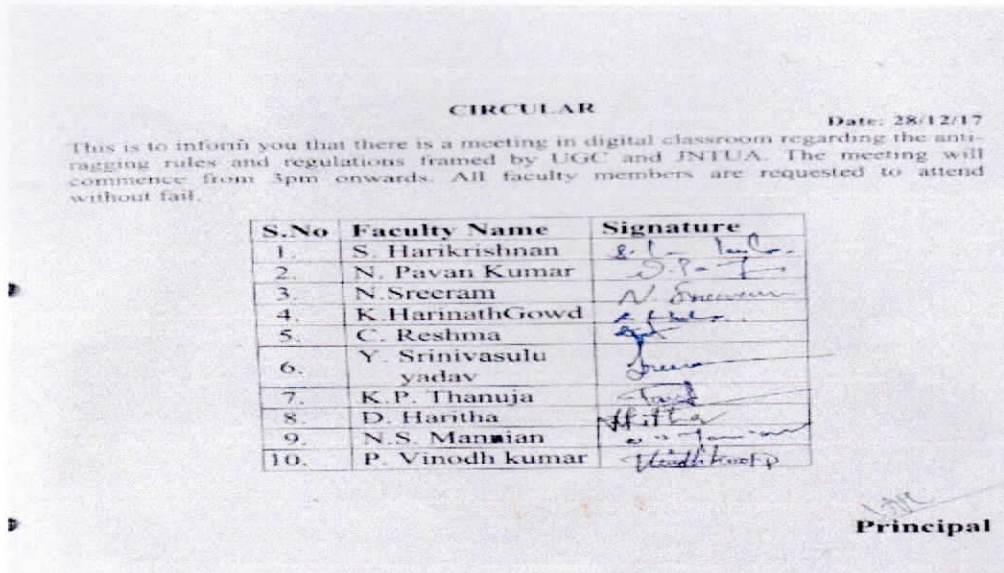 CIRCULAR
Date: 28/12/17
This is to inform you that there is a meeting in digital classroom regarding the anti-
ragging rules and regulations framed by UGC and JNTUA. The meeting will
commence from 3pm onwards. All faculty members are requested to attend
without fail.
S.No Faculty Name Signature
1. S. Harikrishnan
2. N. Pavan Kumar
3. N.Sreeram N. Sreeram
4. K.HarinathGowd
5. C. Reshma
6. Y. Srinivasulu
yadav
7. K.P. Thanuja
8. D. Haritha
9. N.S. Mannian
10. P. Vinodh kumar
Principal